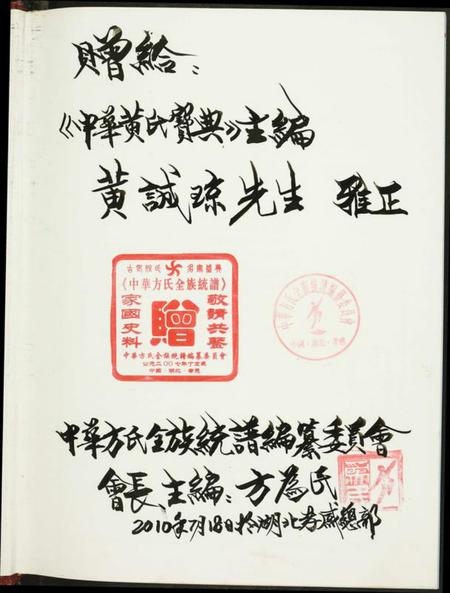 贈給：
《中華黃氏寶典》主編
黃誠琼先生 雅正
《中華方氏全族統譜》
家國史料
贈
敬請共鑒
中華方氏全族統譜編纂委員會
公元二00七年丁亥歲
中國·湖北·孝感
中華方氏全族統譜編纂委員會
中國·湖北·孝感
中華方氏全族統譜編纂委員會
會長、主編：方為民
2010年7月18日於湖北孝感總部